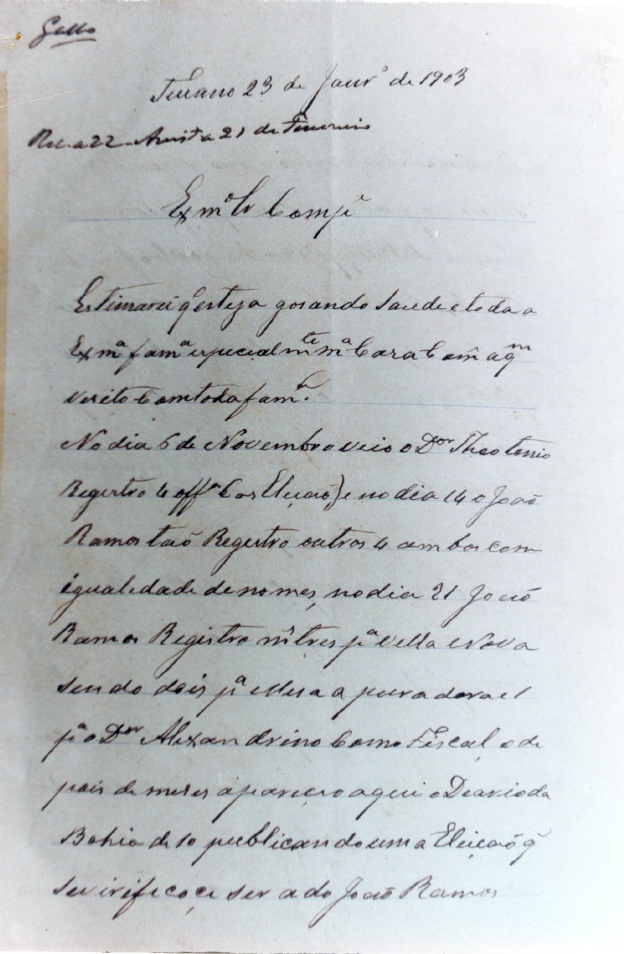 Gallo
Tucano 23 de Janrº de 1903
Rec. a 22 - Arista 21 de Fevereiro
Exmº Sr Compe
Estimarei q esteja gosando saude e toda a
Exmª famª especialmte mª Cara Comª a qm
visito com toda famª.
No dia 6 de Novembro veio o Dor Theotonio
Registro 4 offos (as Eleição) e no dia 14 o João
Ramos taõ Registro outros 4 ambos com
igualedade de nomes, no dia 21 João
Ramos Registro mtres pª Vella e Nova
sendo dois pª Mesa apuradora e 1
pª o Dor Alexandrino Como Fiscal, e de
pois de meses apareceo aqui o Deario da
Bahia de 10 publicando uma Eleição q
se virificoce ser a do João Ramos